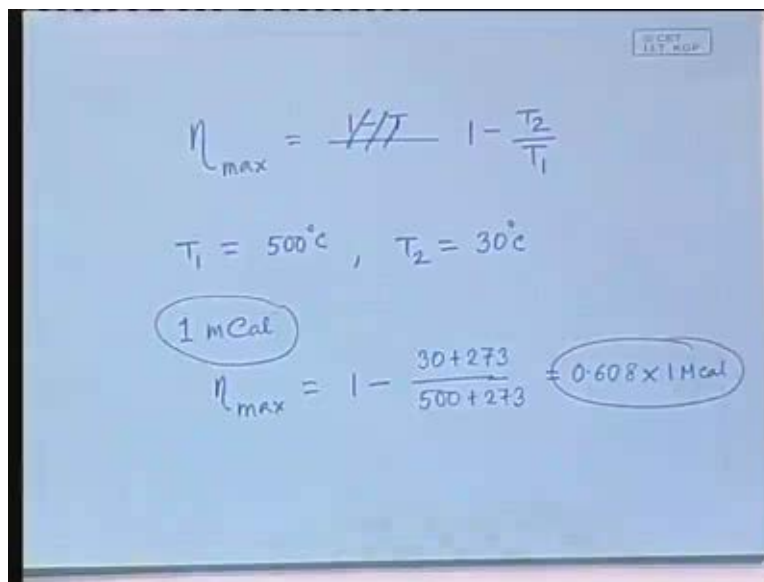 © CET
I.I.T. KGP
η max = 1 - T2/T1
T1 = 500°C , T2 = 30°C
1 mCal
η max = 1 - 30+273/500+273 = 0.608 × 1 Mcal